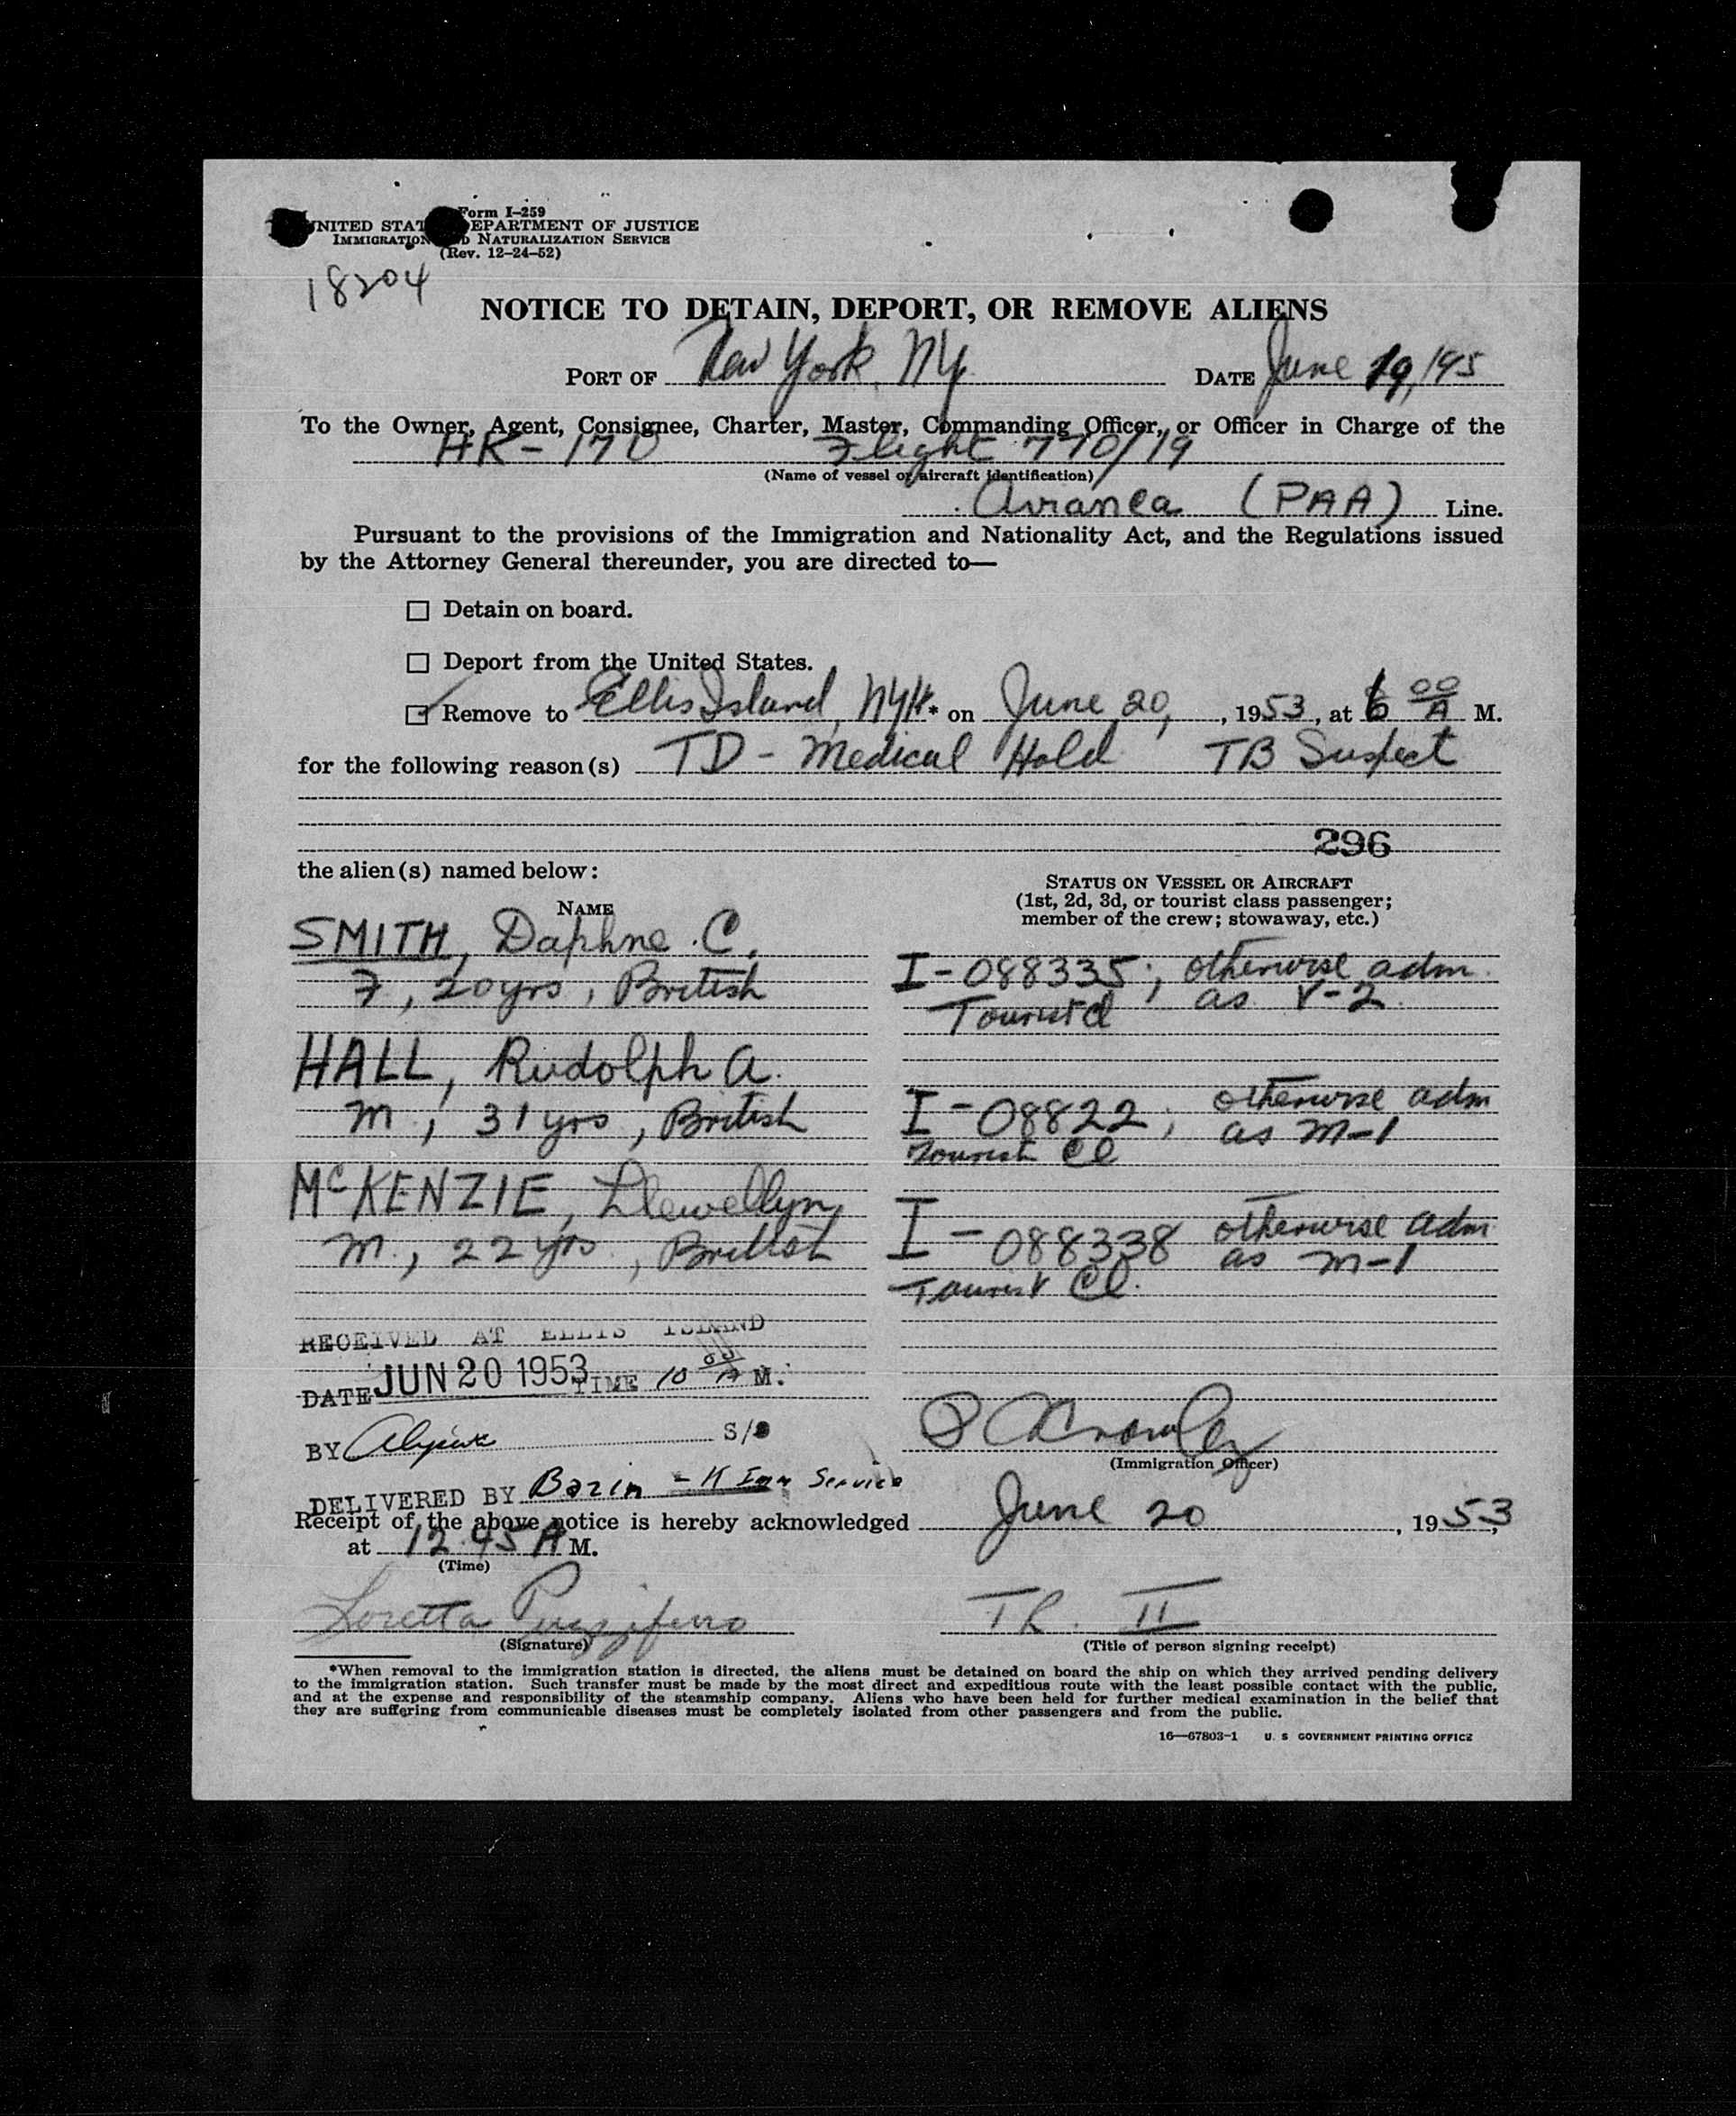 Form I-259
UNITED STATES DEPARTMENT OF JUSTICE
IMMIGRATION AND NATURALIZATION SERVICE
(Rev. 12-24-52)
18204
NOTICE TO DETAIN, DEPORT, OR REMOVE ALIENS
PORT OF New York, NY. DATE June 19, 195
To the Owner, Agent, Consignee, Charter, Master, Commanding Officer, or Officer in Charge of the
HK-170 Flight 770/19
(Name of vessel or aircraft identification)
Avianca (PAA) Line.
Pursuant to the provisions of the Immigration and Nationality Act, and the Regulations issued
by the Attorney General thereunder, you are directed to—
☐ Detain on board.
☐ Deport from the United States.
☑ Remove to Ellis Island, NYH.* on June 20, , 1953, at 6 00 A M.
for the following reason(s) TD - Medical Hold TB Suspect
296
the alien(s) named below:
STATUS ON VESSEL OR AIRCRAFT
(1st, 2d, 3d, or tourist class passenger;
member of the crew; stowaway, etc.)
NAME
SMITH, Daphne C.
F, 20 yrs, British
I-088335; otherwise adm.
as V-2.
Tourist Cl
HALL, Rudolph A.
M, 31 yrs, British
I-08822; otherwise adm
as M-1
Tourist Cl
McKENZIE, Llewellyn,
M., 22 yrs., British
I-088338 otherwise adm
as M-1
Tourist Cl.
RECEIVED AT ELLIS ISLAND
DATE JUN 20 1953 TIME 10 00 A M.
BY S/
(Immigration Officer)
DELIVERED BY Bazin - K Imm Service
Receipt of the above notice is hereby acknowledged June 20, 1953,
at 12.45 A M.
(Time)
Loretta
TR. II
(Signature)
(Title of person signing receipt)
*When removal to the immigration station is directed, the aliens must be detained on board the ship on which they arrived pending delivery
to the immigration station. Such transfer must be made by the most direct and expeditious route with the least possible contact with the public,
and at the expense and responsibility of the steamship company. Aliens who have been held for further medical examination in the belief that
they are suffering from communicable diseases must be completely isolated from other passengers and from the public.
16—67803-1 U. S GOVERNMENT PRINTING OFFICE